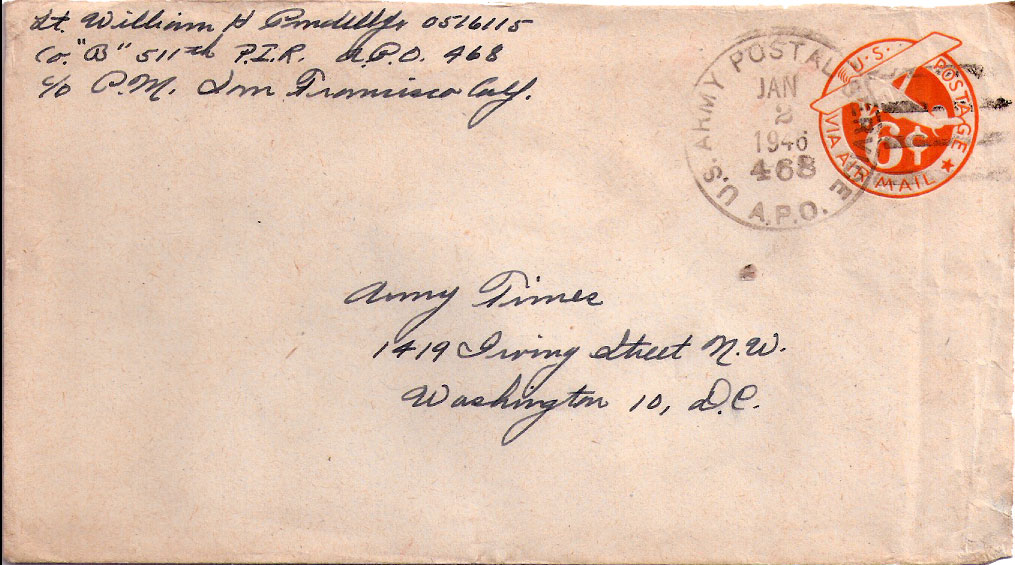 Lt. William H 0516115
Co. "B" 511th P.I.R. A.P.O. 468
c/o P.M. San Francisco Calif.
U.S. ARMY POSTAL SERVICE
JAN
2
1946
468
A.P.O.
U.S. POSTAGE
6¢
VIA AIR MAIL
Army Times
1419 Irving Street N.W.
Washington 10, D.C.